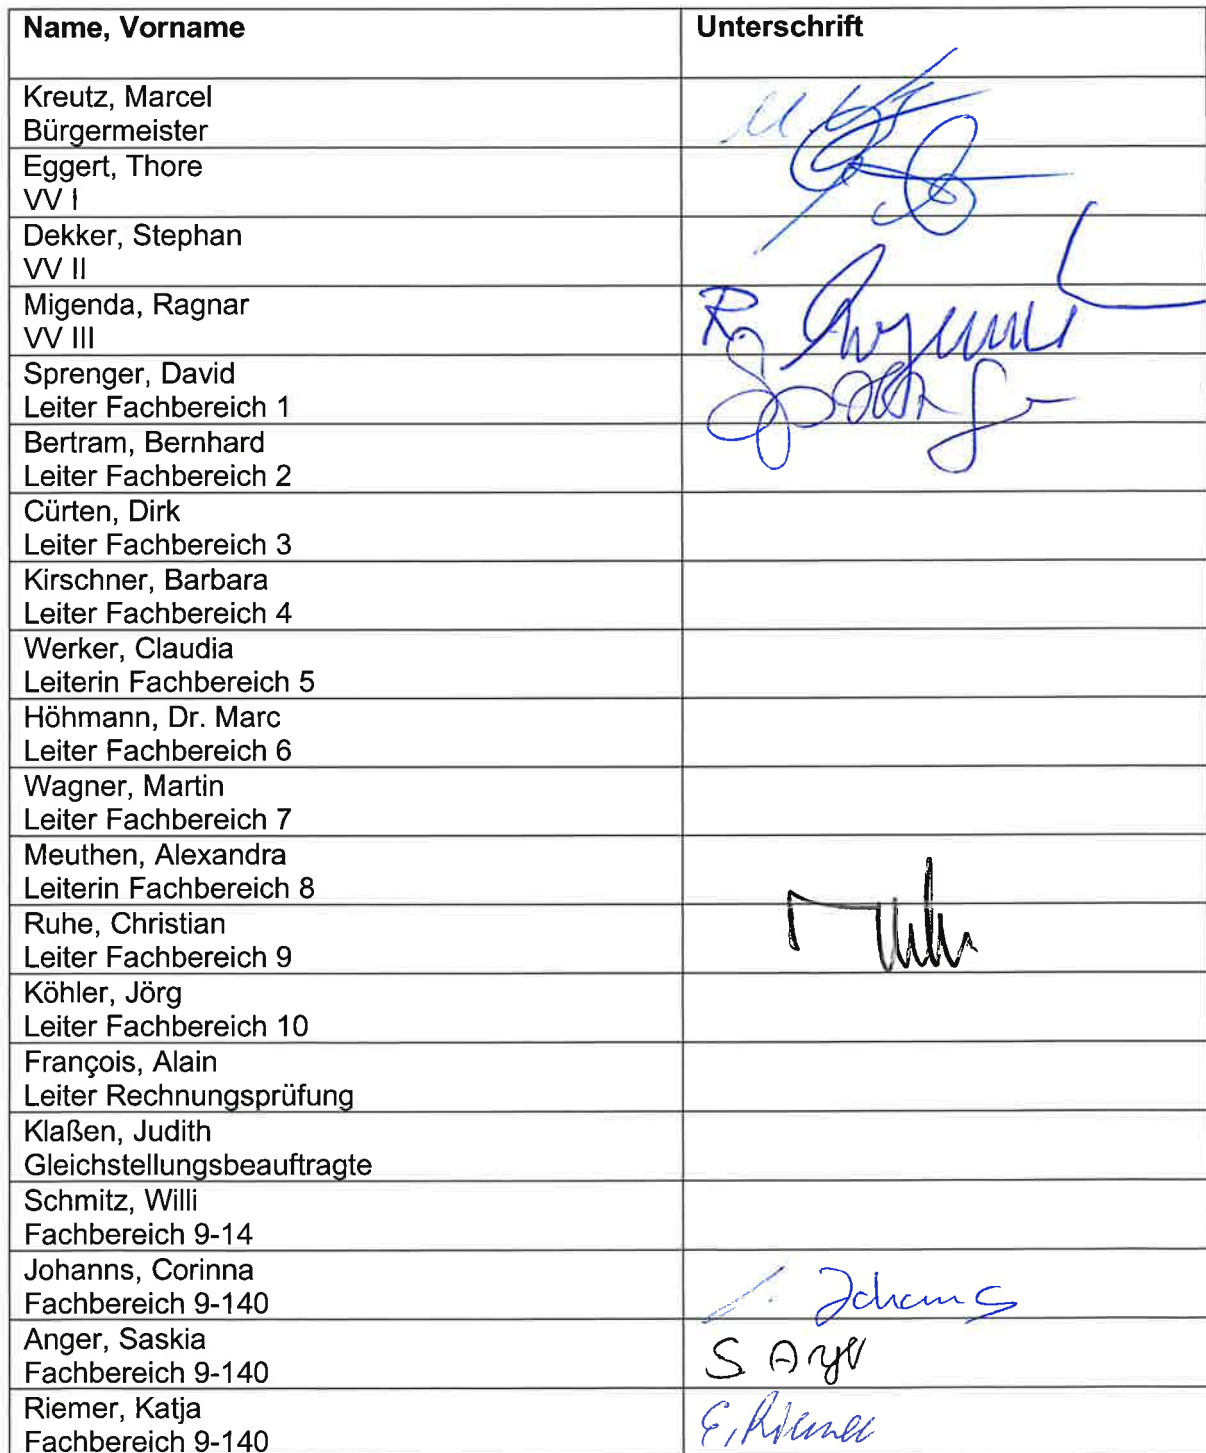 Name, Vorname Unterschrift
Kreutz, Marcel
Bürgermeister
Eggert, Thore
VV I
Dekker, Stephan
VV II
Migenda, Ragnar
VV III
Sprenger, David
Leiter Fachbereich 1
Bertram, Bernhard
Leiter Fachbereich 2
Cürten, Dirk
Leiter Fachbereich 3
Kirschner, Barbara
Leiter Fachbereich 4
Werker, Claudia
Leiterin Fachbereich 5
Höhmann, Dr. Marc
Leiter Fachbereich 6
Wagner, Martin
Leiter Fachbereich 7
Meuthen, Alexandra
Leiterin Fachbereich 8
Ruhe, Christian
Leiter Fachbereich 9
Köhler, Jörg
Leiter Fachbereich 10
François, Alain
Leiter Rechnungsprüfung
Klaßen, Judith
Gleichstellungsbeauftragte
Schmitz, Willi
Fachbereich 9-14
Johanns, Corinna
Fachbereich 9-140 Johanns
Anger, Saskia
Fachbereich 9-140
Riemer, Katja
Fachbereich 9-140